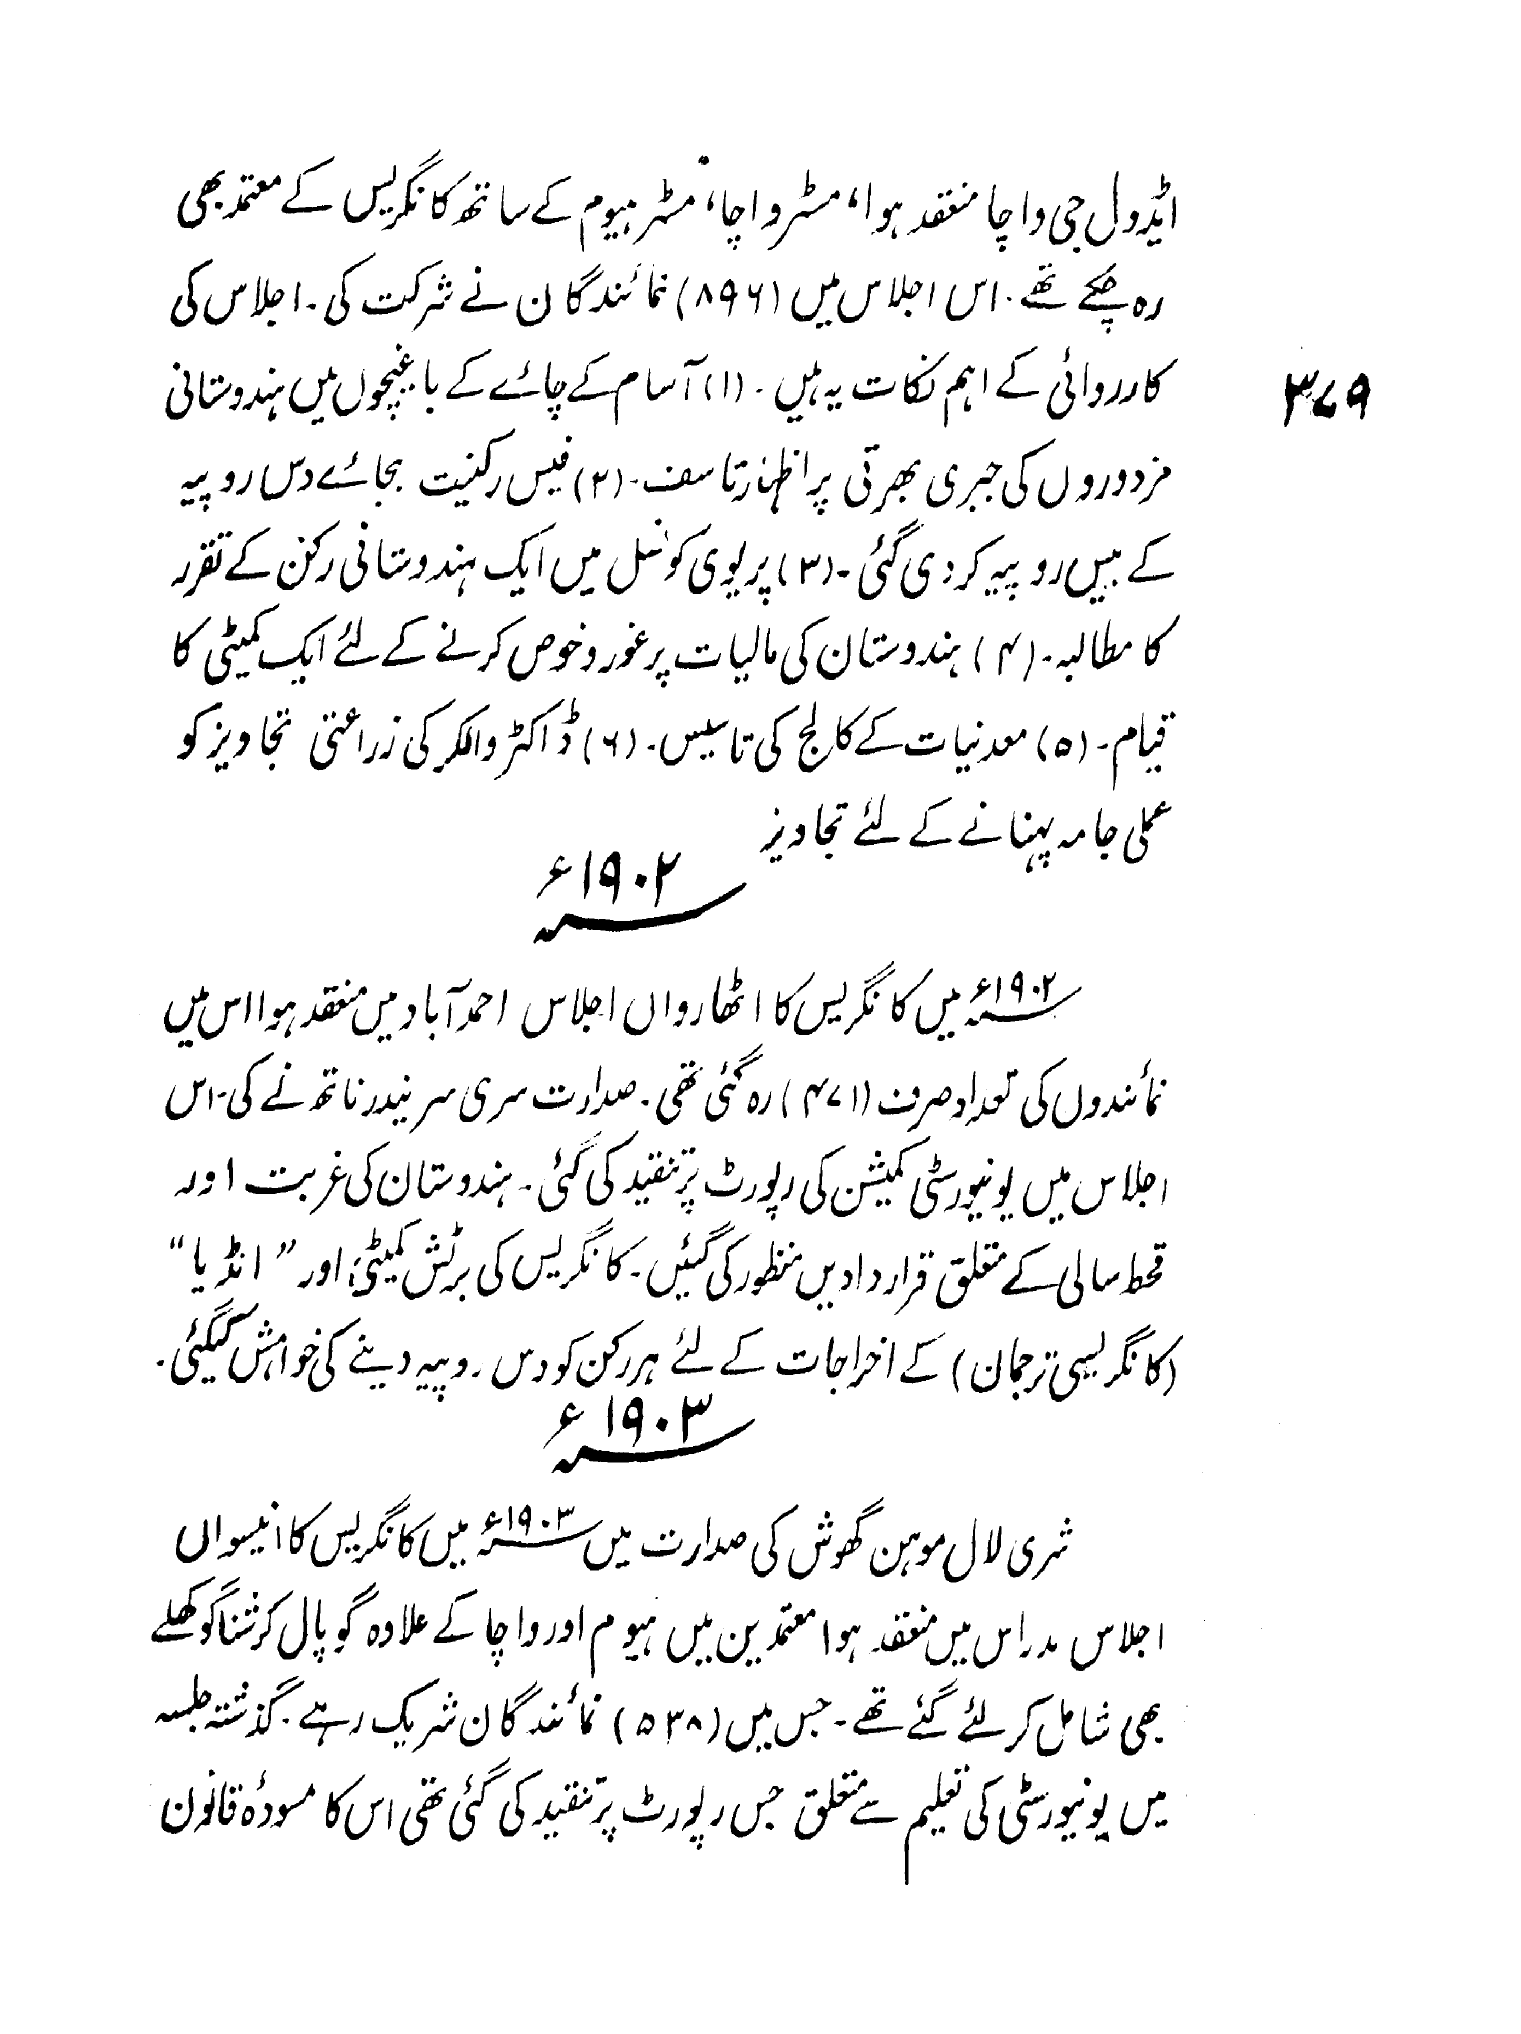 ایڈول جی واچا منعقد ہوا، مسٹر واچا، مسٹر ہیوم کے ساتھ کانگریس کے معتمد بھی
رہ چکے تھے۔ اس اجلاس میں (۸۹۶) نمائندگان نے شرکت کی۔ اجلاس کی
کارروائی کے اہم نکات یہ ہیں۔ (۱) آسام کے چائے کے باغیچوں میں ہندوستانی
۳۷۹
مزدوروں کی جبری بھرتی پر اظہار تاسف۔ (۲) فیس رکنیت بجائے دس روپیہ
کے بیس روپیہ کر دی گئی۔ (۳) پریوی کونسل میں ایک ہندوستانی رکن کے تقرر
کا مطالبہ۔ (۴) ہندوستان کی مالیات پر غور و خوص کرنے کے لئے ایک کمیٹی کا
قیام۔ (۵) معدنیات کے کالج کی تاسیس۔ (۶) ڈاکٹر والکر کی زراعتی تجاویز کو
عملی جامہ پہنانے کے لئے تجاویز
۱۹۰۲ء
۱۹۰۲ء میں کانگریس کا اٹھارواں اجلاس احمدآباد میں منعقد ہوا اس میں
نمائندوں کی تعداد صرف (۴۷۱) رہ گئی تھی۔ صدارت سری سریندر ناتھ نے کی۔ اس
اجلاس میں یونیورسٹی کمیشن کی رپورٹ پر تنقید کی گئی۔ ہندوستان کی غربت اور
قحط سالی کے متعلق قراردادیں منظور کی گئیں۔ کانگریس کی برٹش کمیٹی اور ”انڈیا“
(کانگریسی ترجمان) کے اخراجات کے لئے ہر رکن کو دس روپیہ دینے کی خواہش کیگئی۔
۱۹۰۳ء
شری لال موہن گھوش کی صدارت میں ۱۹۰۳ء میں کانگریس کا انیسواں
اجلاس مدراس میں منعقد ہوا معتمدین میں ہیوم اور واچا کے علاوہ گوپال کرشنا گوکھلے
بھی شامل کر لئے گئے تھے۔ جس میں (۵۳۸) نمائندگان شریک رہے۔ گذشتہ جلسہ
میں یونیورسٹی کی تعلیم سے متعلق جس رپورٹ پر تنقید کی گئی تھی اس کا مسودۂ قانون